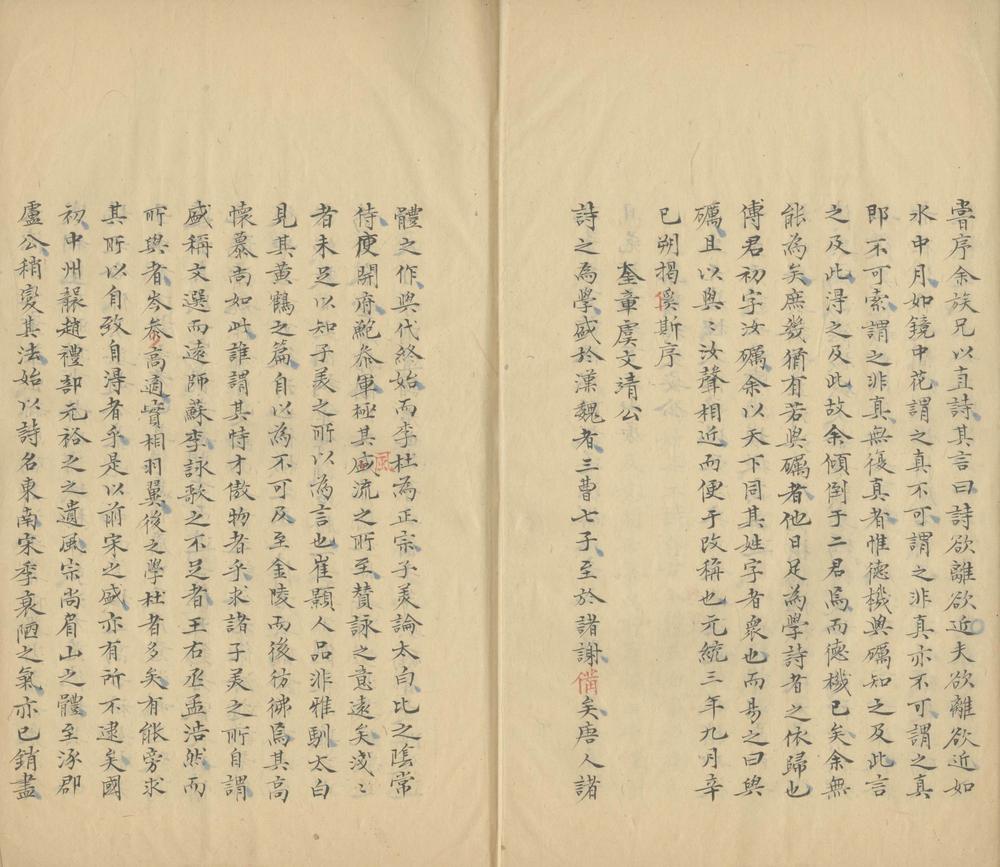 甞序余族兄以直詩其言曰詩欲離欲近夫欲離欲近如
水中月如鏡中花謂之真不可謂之非真亦不可謂之真
即不可索謂之非真無復真者惟德機與礪知之及此言
之及此淂之及此故余傾倒于二君焉而德機已矣余無
能為矣庶㡬猶有若與礪者他日足為學詩者之依歸也
傅君初字汝礪余以天下同其姓字者衆也而昜之曰與
礪且以與汝聲相近而便于改稱也元統三年九月辛
巳朔揭傒斯序
奎章虞文靖公
詩之為學盛於漢魏者三曹七子至於諸謝備矣唐人諸
體之作與代終始而李杜為正宗子羙論太白比之陰常
侍庾開府鮑叅軍極其風流之所至賛詠之意遠矣淺〻
者未足以知子羙之所以為言也崔顥人品非雅馴太白
見其黄鶴之篇自以為不可及至金陵而後彷彿焉其高
懐慕尚如此誰謂其恃才傲物者乎求諸子羙之所自謂
盛稱文選而遠師蘇李詠歌之不足者王右丞孟浩然而
所與者岑參高適實相羽翼後之學杜者多矣有能旁求
其所以自致自淂者乎是以前宋之盛亦有所不逮矣國
初中州襲趙禮部元裕之之遺風宗尚眉山之體至涿郡
盧公稍變其法始以詩名東南宋季衰陋之氣亦已銷盡